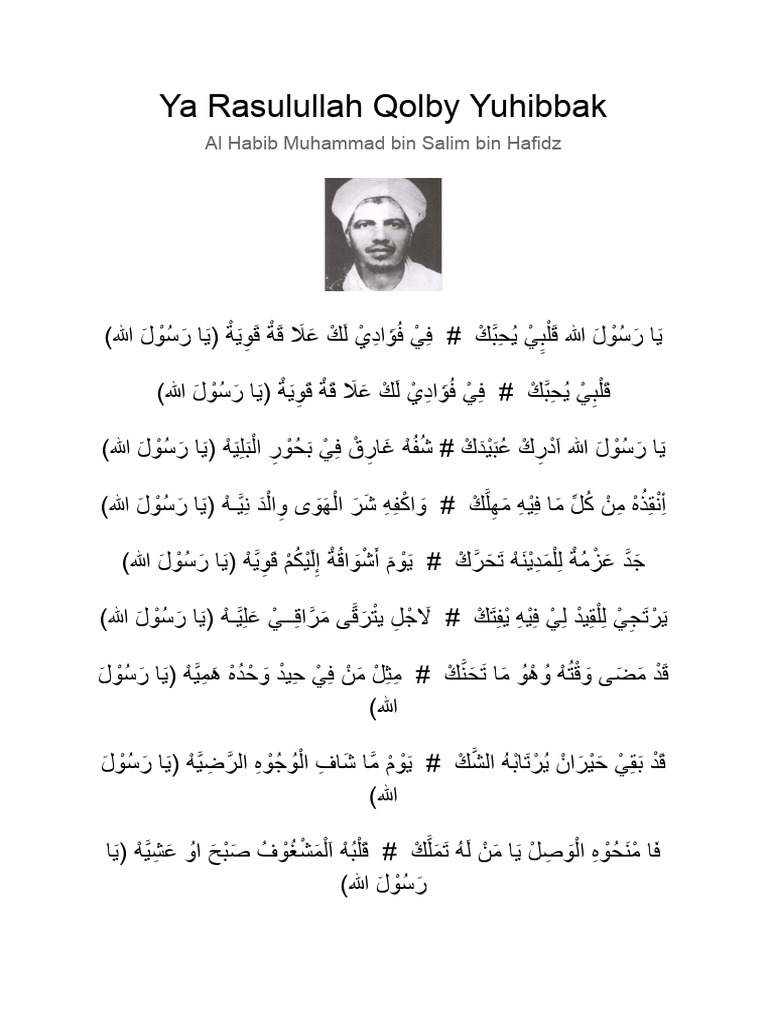 Ya Rasulullah Qolby Yuhibbak
Al Habib Muhammad bin Salim bin Hafidz
يَا رَسُوْلَ الله قَلْبِيْ يُحِبَّكْ # فِيْ فُؤَادِيْ لَكْ عَلَا قَةْ قَوِيَةْ (يَا رَسُوْلَ الله)
قَلْبِيْ يُحِبَّكْ # فِيْ فُؤَادِيْ لَكْ عَلَا قَةْ قَوِيَةْ (يَا رَسُوْلَ الله)
يَا رَسُوْلَ الله اَدْرِكْ عُبَيْدَكْ # شُفُهْ غَارِقْ فِيْ بَحُوْرِ الْبَلِيَهْ (يَا رَسُوْلَ الله)
اِنْقِذُهْ مِنْ كُلِّ مَا فِيْهِ مَهِلَّكْ # وَاكْفِهِ شَرَ الْهَوَى وِالْدَ نِيَّـهْ (يَا رَسُوْلَ الله)
جَدَّ عَزْمُهْ لِلْمَدِيْنَهْ تَحَرَّكْ # يَوْمَ أَشْوَاقُهْ إِلَيْكُمْ قَوِيَّهْ (يَا رَسُوْلَ الله)
يَرْتَجِيْ لِلْقِيدْ لِيْ فِيْهِ يْفِتَكْ # لَاجْلِ يِتْرَقَّى مَرَّاقِــيْ عَلِيَّـهْ (يَا رَسُوْلَ الله)
قَدْ مَضَى وَقْتُهْ وُهْوُ مَا تَحَنَّكْ # مِثِلْ مَنْ فِيْ حِيدْ وَحْدُهْ هَمِيَّهْ (يَا رَسُوْلَ
الله)
قَدْ بَقِيْ حَيْرَانْ يُرْتَابْهُ الشَّكْ # يَوْمْ مَّا شَافِ الْوُجُوْهِ الرَّضِيَّهْ (يَا رَسُوْلَ
الله)
فَا مْنَحُوْهِ الْوَصِلْ يَا مَنْ لَهُ تَمَلَّكْ # قَلْبُهْ اَلْمَشْغُوْفُ صَبْحَ اوُ عَشِيَّهْ (يَا
رَسُوْلَ الله)